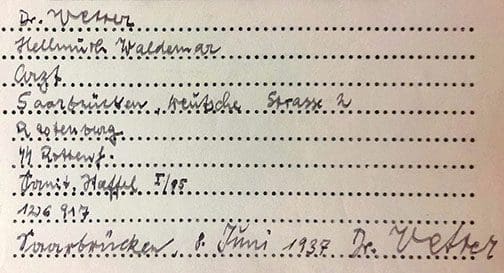 Dr. Vetter
Hellmuth Waldemar
Arzt
Saarbrücken, Deutsche Strasse 2
Rastenburg
SS Rottenf.
Sanit. Staffel I/85
126 917
Saarbrücken, 8. Juni 1937 Dr. Vetter